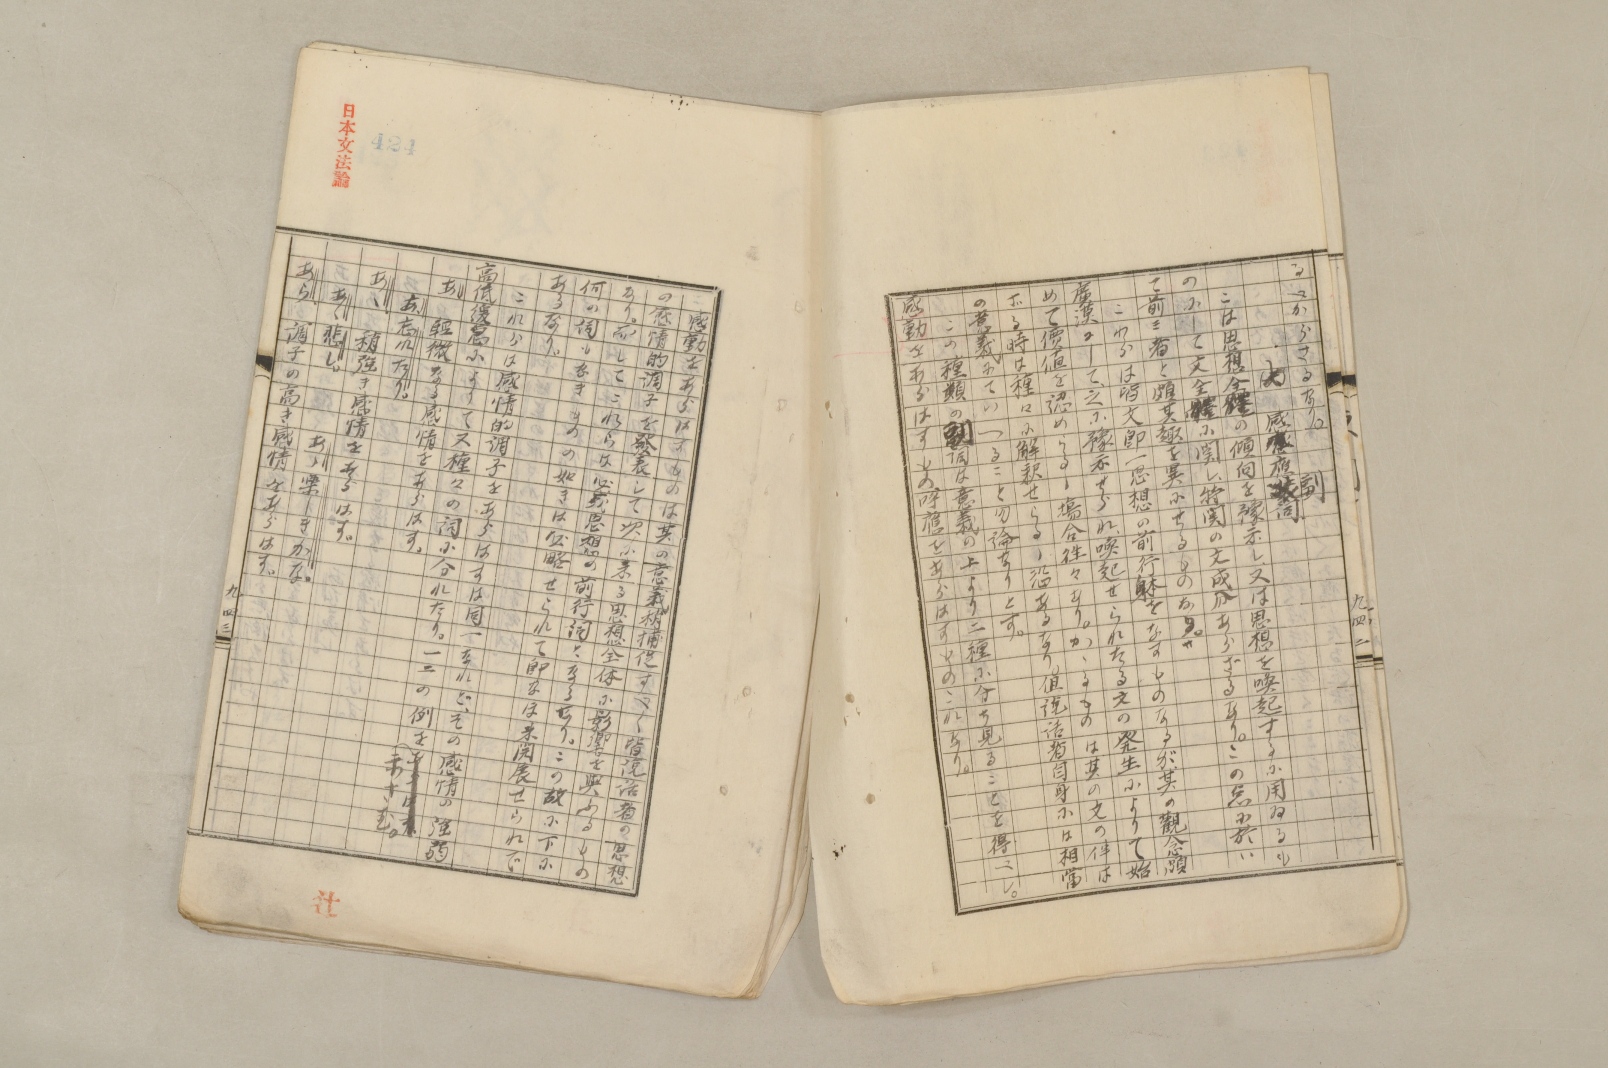 べからざるなり。
感應副詞
こは思想全體の傾向を豫示し又は思想を喚起するに用ゐるも
のにして文全體に関し特関の文成分あらざるなり。この点に於い
て前三者と頗其趣を異にせるものなり。
これらは皆文即一思想の前行躰をなすものなるが其の觀念頗
廣漠にして之に豫示せられ喚起せられたる文の発生によりて始
めて價値を認めらるゝ場合往々あり。かゝるもの は其の文の伴は
ざる時は種々に解釈せらるゝ恐あるなり。但說話者自身には相當
の意義にていへること勿論なりとす。
この種類の副詞は意義の上より二種に分ち見ることを得べし。
感動をあらはすもの呼應をあらはすものこれなり。
日本文法論
484
感動をあらはすものは其の意義稍捕捉すべく皆說話者の思想
の感情的調子を發表して次に来る思想全体に影響を與ふるもの
なり。而してこれらは必ず思想の前行詞となるなり。この故に下に
何の詞もなきものの如きは省略せられて即なほ未開展せられで
あるなり。
これらは感情的調子をあらはすは同一なれど、その感情の強弱
高低優急によりて又種々の詞に分れたり。一二の例を
示さむ。
あ 輕微なる感情をあらはす。
あ、忘れたり。
あゝ 稍強き感情をあらはす。
あゝ悲し。 あゝ樂しきかな。
あら 調子の高き感情をあらはす。
九四二
九四三
辻